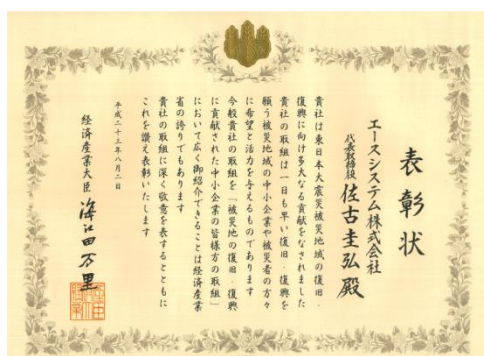 表彰状
エースシステム株式会社
代表取締役 佐古圭弘殿
貴社は東日本大震災被災地域の復旧・
復興に向け多大なる貢献をなされました
貴社の取組は一日も早い復旧・復興を
願う被災地域の中小企業や被災者の方々
に希望と活力を与えるものであります
今般貴社の取組を「被災地の復旧・復興
に貢献された中小企業の皆様方の取組」
において広く御紹介できることは経済産業
省の誇りでもあります
貴社の取組に深く敬意を表するとともに
これを讃え表彰いたします
平成二十三年八月二日
経済産業大臣 海江田万里